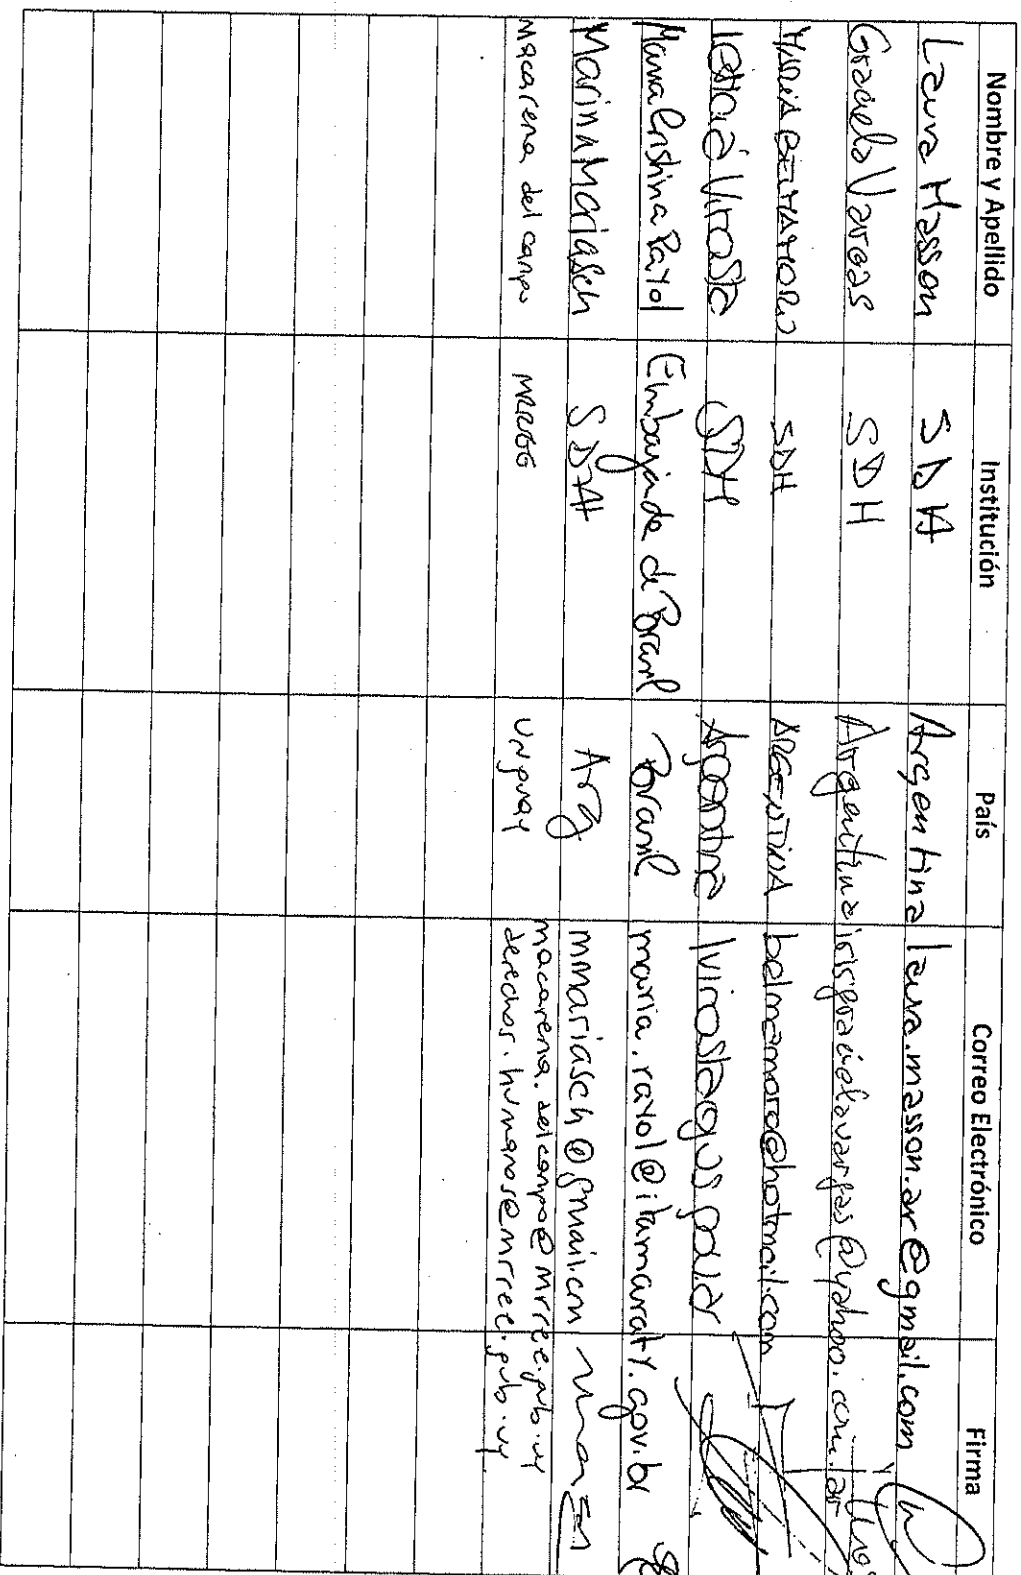 Nombre y Apellido Institución País Correo Electrónico Firma
Laura Masson SDH Argentina laura.masson.ar@gmail.com
Graciela Vargas SDH Argentina irisgracielavargas@yahoo.com.ar
SDH ARGENTINA belmamoro@hotmail.com
SDH Argentina
Maria Cristina Rayol Embajada de Brasil Brasil maria.rayol@itamaraty.gov.br
Marina Mariasch SDH Arg mmariasch@gmail.com
macarena del campo MRREE Uruguay macarena.delcampo@mrree.gub.uy
derechos.humanos@mrree.gub.uy